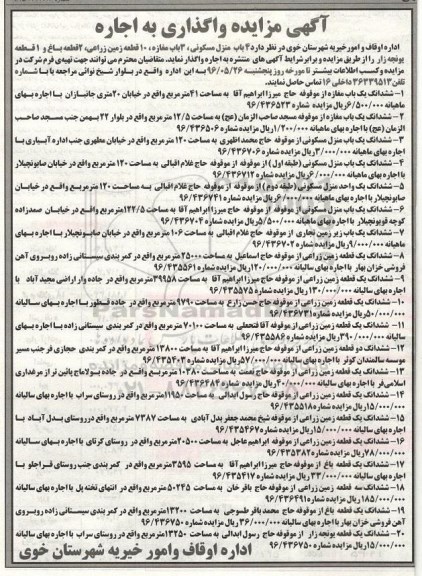 آگهی مزایده واگذاری به اجاره
اداره اوقاف و امور خیریه شهرستان خوی در نظر دارد ۴ باب منزل مسکونی، ۳ باب مغازه، ۱۰ قطعه زمین زراعی، ۲ قطعه باغ و ۱ قطعه
یونجه زار را از طریق مزایده و برابر شرایط آگهی های منتشره به اجاره واگذار نماید. متقاضیان محترم می توانند جهت تهیه ی فرم شرکت در
مزایده و کسب اطلاعات بیشتر تا مورخه روز پنجشنبه ۹۶/۰۵/۲۶ به این اداره واقع در بلوار شیخ نوائی مراجعه یا با شماره
تلفن ۳۶۳۳۹۵۱۳ داخلی ۱۶ تماس حاصل نمایند.
۱- ششدانگ یک باب مغازه از موقوفه حاج میرزا ابراهیم آقا به مساحت ۴۱ مترمربع واقع در خیابان ۲۰ متری جانبازان با اجاره بهای
ماهیانه ۶/۵۰۰/۰۰۰ ریال مزایده شماره ۹۶/۴۳۶۵۲۳
۲- ششدانگ یک باب مغازه از موقوفه مسجد صاحب الزمان (عج) به مساحت ۱۲/۵ مترمربع واقع در بلوار ۲۲ بهمن جنب مسجد صاحب
الزمان (عج) با اجاره بهای ماهیانه ۱/۲۰۰/۰۰۰ ریال مزایده شماره ۹۶/۴۳۶۵۰۶
۳- ششدانگ یک باب منزل مسکونی از موقوفه حاج محمد اظهری به مساحت ۱۲۰ مترمربع واقع در خیابان مطهری جنب اداره آبیاری با
اجاره بهای ماهیانه ۳/۰۰۰/۰۰۰ ریال مزایده شماره ۹۶/۴۳۶۷۰۶
۴- ششدانگ یک باب منزل مسکونی (طبقه اول) از موقوفه حاج غلام اقبالی به مساحت ۱۲۰ مترمربع واقع در خیابان صابونچیلار
با اجاره بهای ماهیانه ۶/۰۰۰/۰۰۰ ریال مزایده شماره ۹۶/۴۳۶۷۱۲
۵- ششدانگ یک واحد منزل مسکونی (طبقه دوم) از موقوفه حاج غلام اقبالی به مساحت ۱۲۰ مترمربع واقع در خیابان
صابونچیلار با اجاره بهای ماهیانه ۶/۰۰۰/۰۰۰ ریال مزایده شماره ۹۶/۴۳۶۷۴۱
۶- ششدانگ یک باب منزل مسکونی از موقوفه حاج میرزا ابراهیم آقا به مساحت ۱۲۲/۵ مترمربع واقع در خیابان صمدزاده
کوچه قره پونچیلار با اجاره بهای ماهیانه ۵/۵۰۰/۰۰۰ ریال مزایده شماره ۹۶/۴۳۶۷۰۴
۷- ششدانگ یک باب زیر زمین تجاری از موقوفه حاج غلام اقبالی به مساحت ۱۰۶ متر واقع در خیابان صابونچیلار با اجاره بهای
ماهیانه ۹/۰۰۰/۰۰۰ ریال مزایده شماره ۹۶/۴۳۶۷۰۲
۸- ششدانگ یک قطعه زمین زراعی از موقوفه حاج اسماعیل به مساحت ۲۵۰۰۰ مترمربع واقع در کمربندی سیستانی زاده روبروی آهن
فروشی خزان بهار با اجاره بهای سالیانه ۱۲۰/۰۰۰/۰۰۰ ریال مزایده شماره ۹۶/۴۳۵۵۶۱
۹- ششدانگ یک قطعه زمین زراعی از موقوفه حاج میرزا ابراهیم آقا به مساحت ۲۹۹۵۸ مترمربع واقع در جاده وار اراضی مجید آباد با
اجاره بهای سالیانه ۱۳۰/۰۰۰/۰۰۰ ریال مزایده شماره ۹۶/۴۳۵۵۷۵
۱۰- ششدانگ یک قطعه زمین زراعی از موقوفه حاج حسن زارع به مساحت ۹۷۹۰ مترمربع واقع در جاده قطور با اجاره بهای سالیانه
۵۰/۰۰۰/۰۰۰ ریال مزایده شماره ۹۶/۴۳۶۷۳۱
۱۱- ششدانگ یک قطعه زمین زراعی از موقوفه آقا فتحعلی به مساحت ۷۰۱۰۰ مترمربع واقع در کمربندی سیستانی زاده با اجاره بهای
سالیانه ۳۹۰/۰۰۰/۰۰۰ ریال مزایده شماره ۹۶/۴۳۵۵۸۶
۱۲- ششدانگ دو قطعه زمین زراعی از موقوفه حاج میرزا ابراهیم آقا به مساحت ۱۳۸۰۰ مترمربع واقع در کمربندی حجازی فر جنب مسیر
موسسه سالمندان کوثر با اجاره بهای سالیانه ۵۷/۰۰۰/۰۰۰ ریال مزایده شماره ۹۶/۴۳۵۴۰۳
۱۳- ششدانگ یک قطعه زمین زراعی از موقوفه حاج نعمت به مساحت ۱۰۲۸۰ مترمربع واقع در جاده پائین تر از مرغداری
اسلامی فر با اجاره بهای سالیانه ۴۰/۰۰۰/۰۰۰ ریال مزایده شماره ۹۶/۴۳۶۴۸۴
۱۴- ششدانگ یک قطعه زمین زراعی از موقوفه حاج رسول ابدالی به مساحت ۱۱۹۵۰ مترمربع واقع در روستای سراب با اجاره بهای سالیانه
۱۵/۰۰۰/۰۰۰ ریال مزایده شماره ۹۶/۴۳۵۵۱۸
۱۵- ششدانگ یک قطعه زمین زراعی از موقوفه شیخ محمد جعفر بدل آبادی به مساحت ۷۳۸۷ مترمربع واقع در روستای بدل آباد با
اجاره بهای سالیانه ۱۵/۰۰۰/۰۰۰ ریال مزایده شماره ۹۶/۴۳۵۴۶۷
۱۶- ششدانگ یک قطعه زمین زراعی از موقوفه ابراهیم عاجل به مساحت ۲۰۵۰۰ مترمربع واقع در روستای کرتای با اجاره بهای سالیانه
۷۸/۰۰۰/۰۰۰ ریال مزایده شماره ۹۶/۴۳۵۳۸۲
۱۷- ششدانگ یک قطعه باغ از موقوفه حاج میرزا ابراهیم آقا به مساحت ۳۵۹۵ مترمربع واقع در کمربندی جنب روستای قراجلو با
اجاره بهای سالیانه ۳۳/۰۰۰/۰۰۰ ریال مزایده شماره ۹۶/۴۳۵۴۱۷
۱۸- ششدانگ سه قطعه زمین زراعی از موقوفه حاج باقر خان به مساحت ۵۰۲۴۵ مترمربع واقع در انتهای تخته پل با اجاره بهای سالیانه
۱۸۵/۰۰۰/۰۰۰ ریال مزایده شماره ۹۶/۴۳۶۴۹۱
۱۹- ششدانگ یک قطعه باغ از موقوفه حاج محمد باقر طسوجی به مساحت ۱۳۲۰۰ مترمربع واقع در کمربندی سیستانی زاده روبروی
آهن فروشی خزان بهار با اجاره بهای سالیانه ۳۶/۰۰۰/۰۰۰ ریال مزایده شماره ۹۶/۴۳۶۷۵۰
۲۰- ششدانگ یک قطعه یونجه زار از موقوفه حاج رسول ابدالی به مساحت ۱۳۲۵۰ مترمربع واقع در روستای سراب با اجاره بهای سالیانه
۱۵/۰۰۰/۰۰۰ ریال مزایده شماره ۹۶/۴۳۶۷۵۰
اداره اوقاف و امور خیریه شهرستان خوی